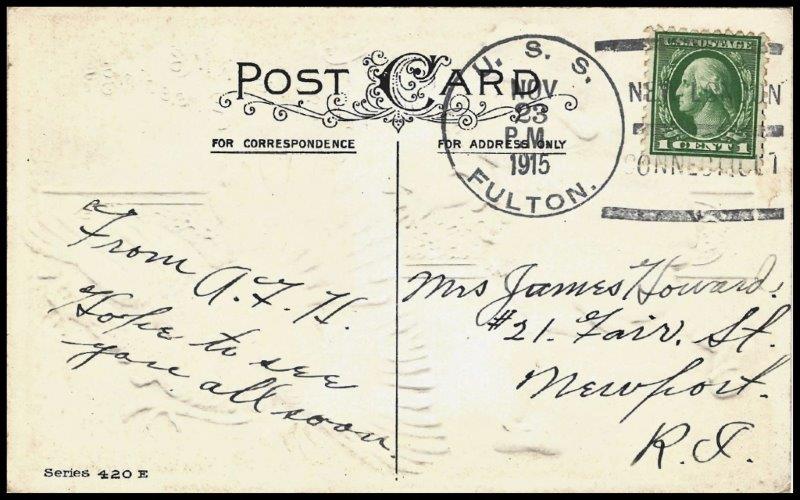 POST CARD
FOR CORRESPONDENCE
FOR ADDRESS ONLY
U. S. S.
NOV
23
P.M.
1915
FULTON.
NEW LONDON
CONNECTICUT
U.S. POSTAGE
1 CENT 1
From A. F. H.
Hope to see
you all soon.
Mrs James Howard.
#21. Fair. St.
Newport.
R. I.
Series 420 E